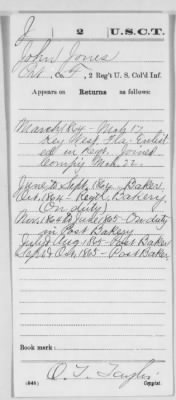 J 2 U.S.C.T.
John Jones
Co. F, 2 Reg't U. S. Col'd Inf.
Appears on
Returns as follows:
March 1864 - Mch 17,
Key West, Fla, Enlist
ed in Regt. Joined
Compy Mch. 22.
June to Sept. 1864. Baker
Oct. 1864 - Bakery,
(On duty)
Nov. 1864 to June 1865 - On duty
in Post Bakery
July & Aug. 1865 - Post Baker
Sept & Oct. 1865 - Post Baker
Book mark:
(546) Copyist.